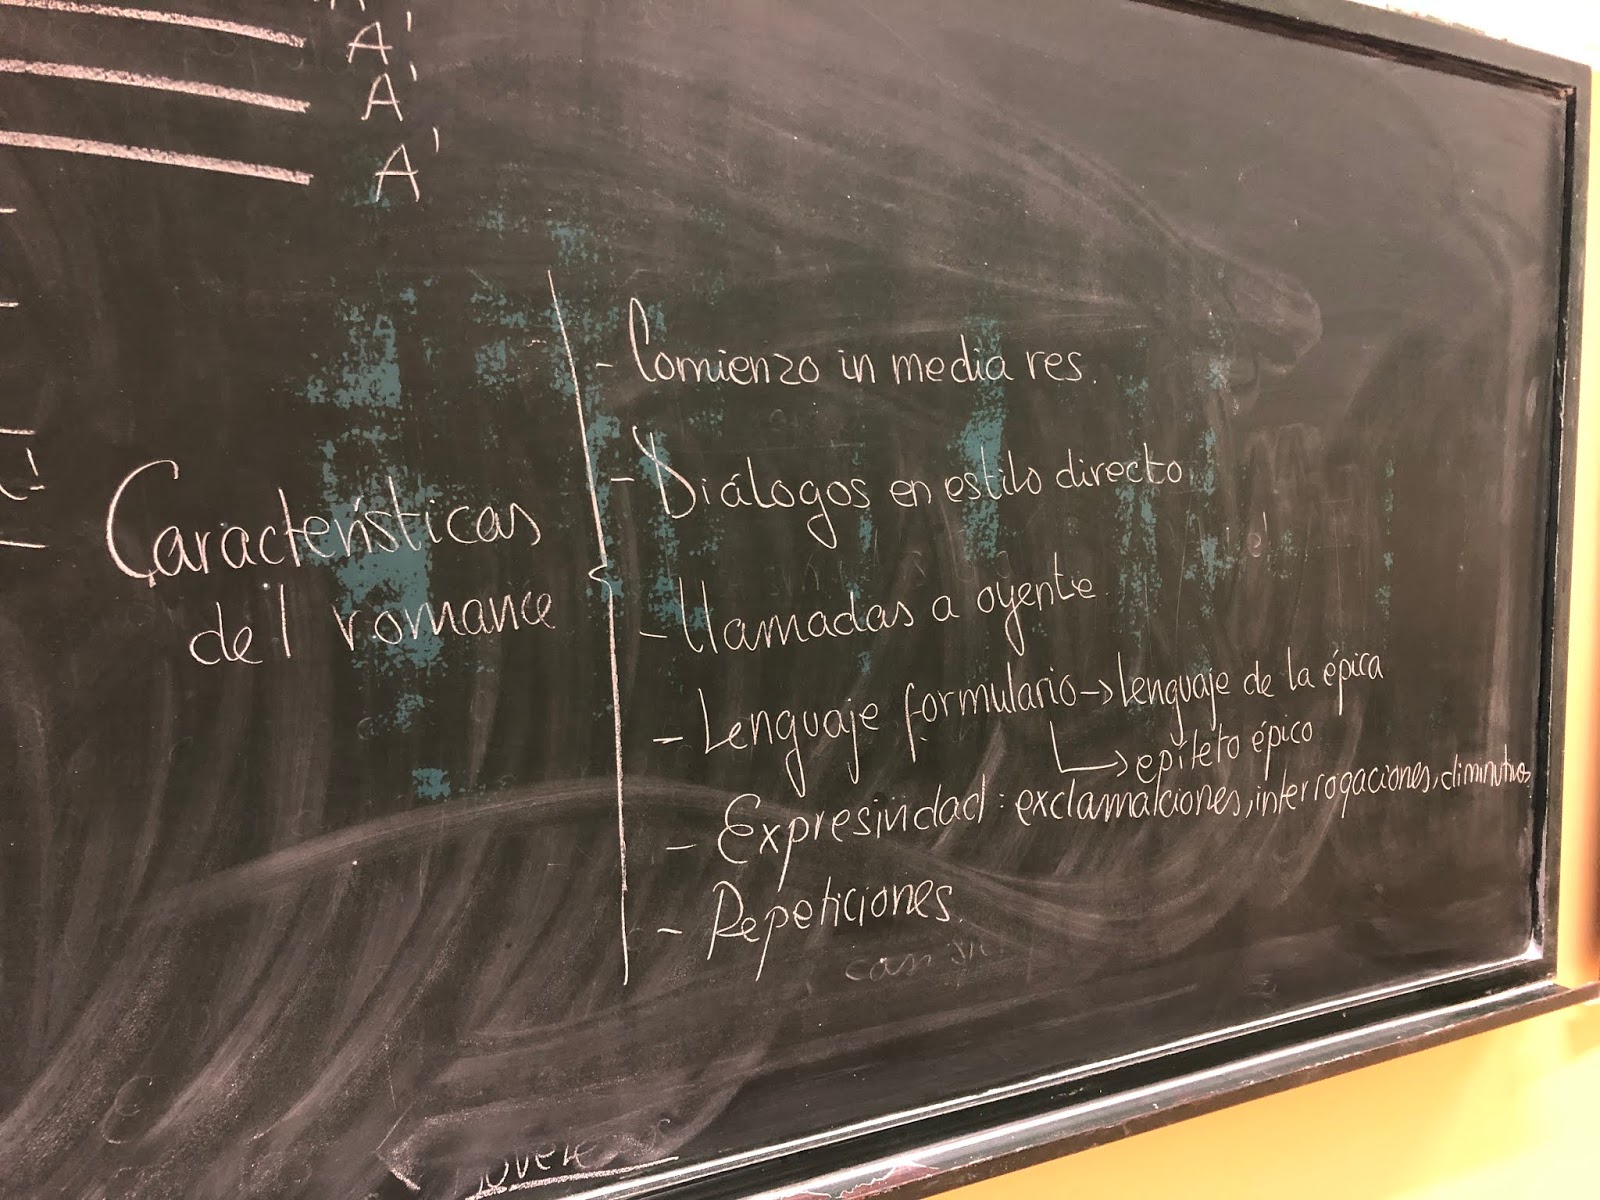 A'
A'
A'
Características
del romance
- Comienzo in media res.
- Diálogos en estilo directo.
- llamadas a oyente.
- Lenguaje formulario → lenguaje de la épica
→ epíteto épico
- Expresividad: exclamaciones, interrogaciones, diminutivos
- Repeticiones.